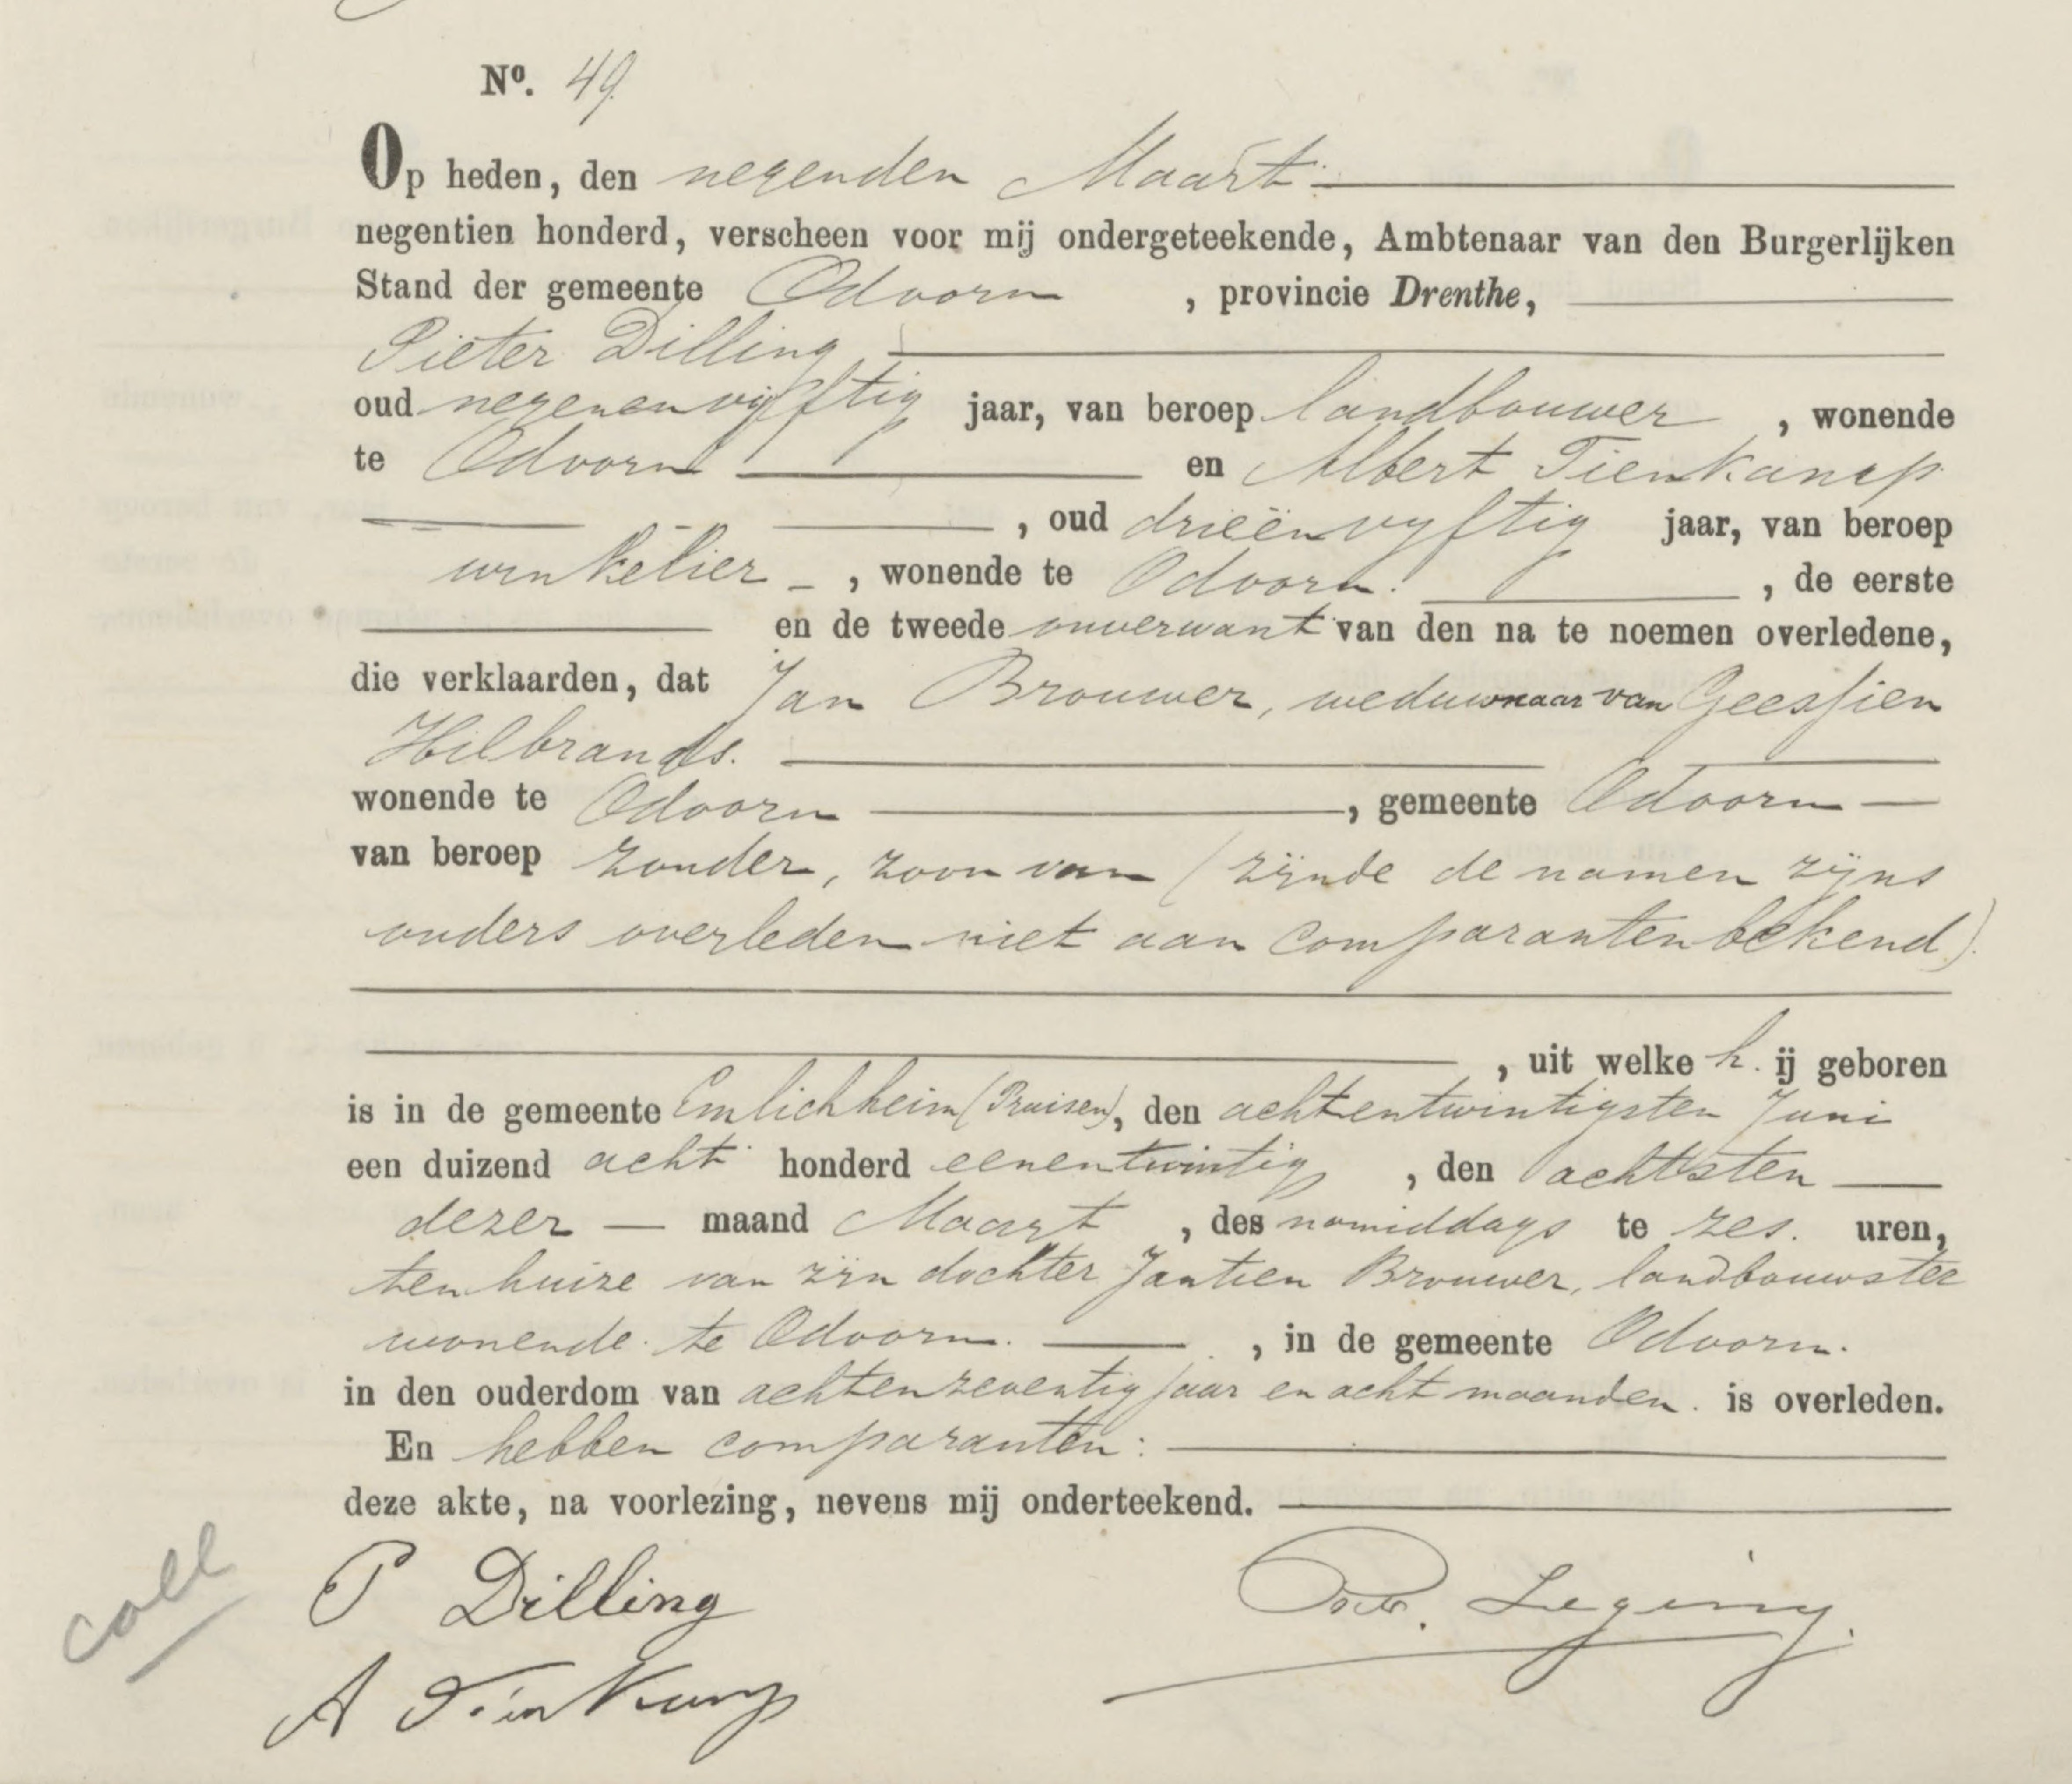 Nº. 49.
Op heden, den negenden Maart
negentien honderd, verscheen voor mij ondergeteekende, Ambtenaar van den Burgerlijken
Stand der gemeente Odoorn , provincie Drenthe,
Pieter Dilling
oud negenenvijftig jaar, van beroep landbouwer , wonende
te Odoorn en Albert Tienkamp
, oud drieënvyftig jaar, van beroep
winkelier , wonende te Odoorn. , de eerste
en de tweede onverwant van den na te noemen overledene,
die verklaarden, dat Jan Brouwer, weduwnaar van Geessien
Hilbrands.
wonende te Odoorn , gemeente Odoorn
van beroep zonder, zoon van (zijnde de namen zijns
ouders overleden niet aan comparanten bekend).
, uit welke h. ij geboren
is in de gemeente Emlichheim (Pruisen), den achtentwintigsten Juni
een duizend acht honderd eenentwintig , den achtsten
dezer maand Maart , des namiddags te zes. uren,
ten huize van zijn dochter Jantien Brouwer, landbouwster
wonende te Odoorn. , in de gemeente Odoorn.
in den ouderdom van achtenzeventig jaar en acht maanden. is overleden.
En hebben comparanten:
deze akte, na voorlezing, nevens mij onderteekend.
P Dilling
Leging.
coll
A Tienkamp